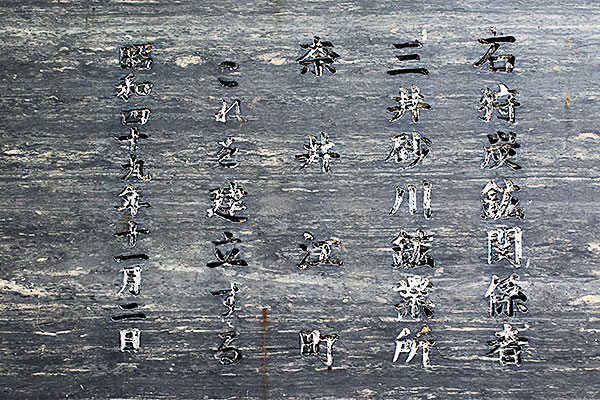 石狩炭鉱関係者
三井砂川鉱業所
奈井江町
これを建立する
昭和四十九年十一月二日